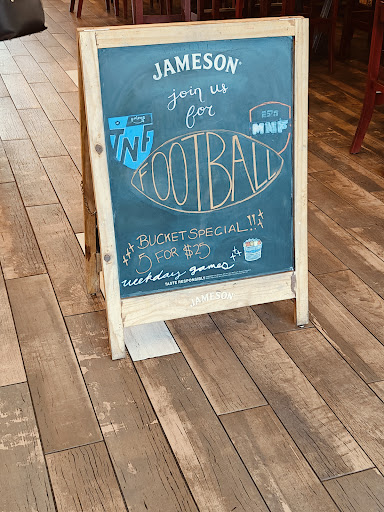 JAMESON
join us
for
TNF
ESPN
MNF
FOOTBALL
BUCKET SPECIAL!!
5 FOR $25
weekday games
TASTE RESPONSIBLY
JAMESON